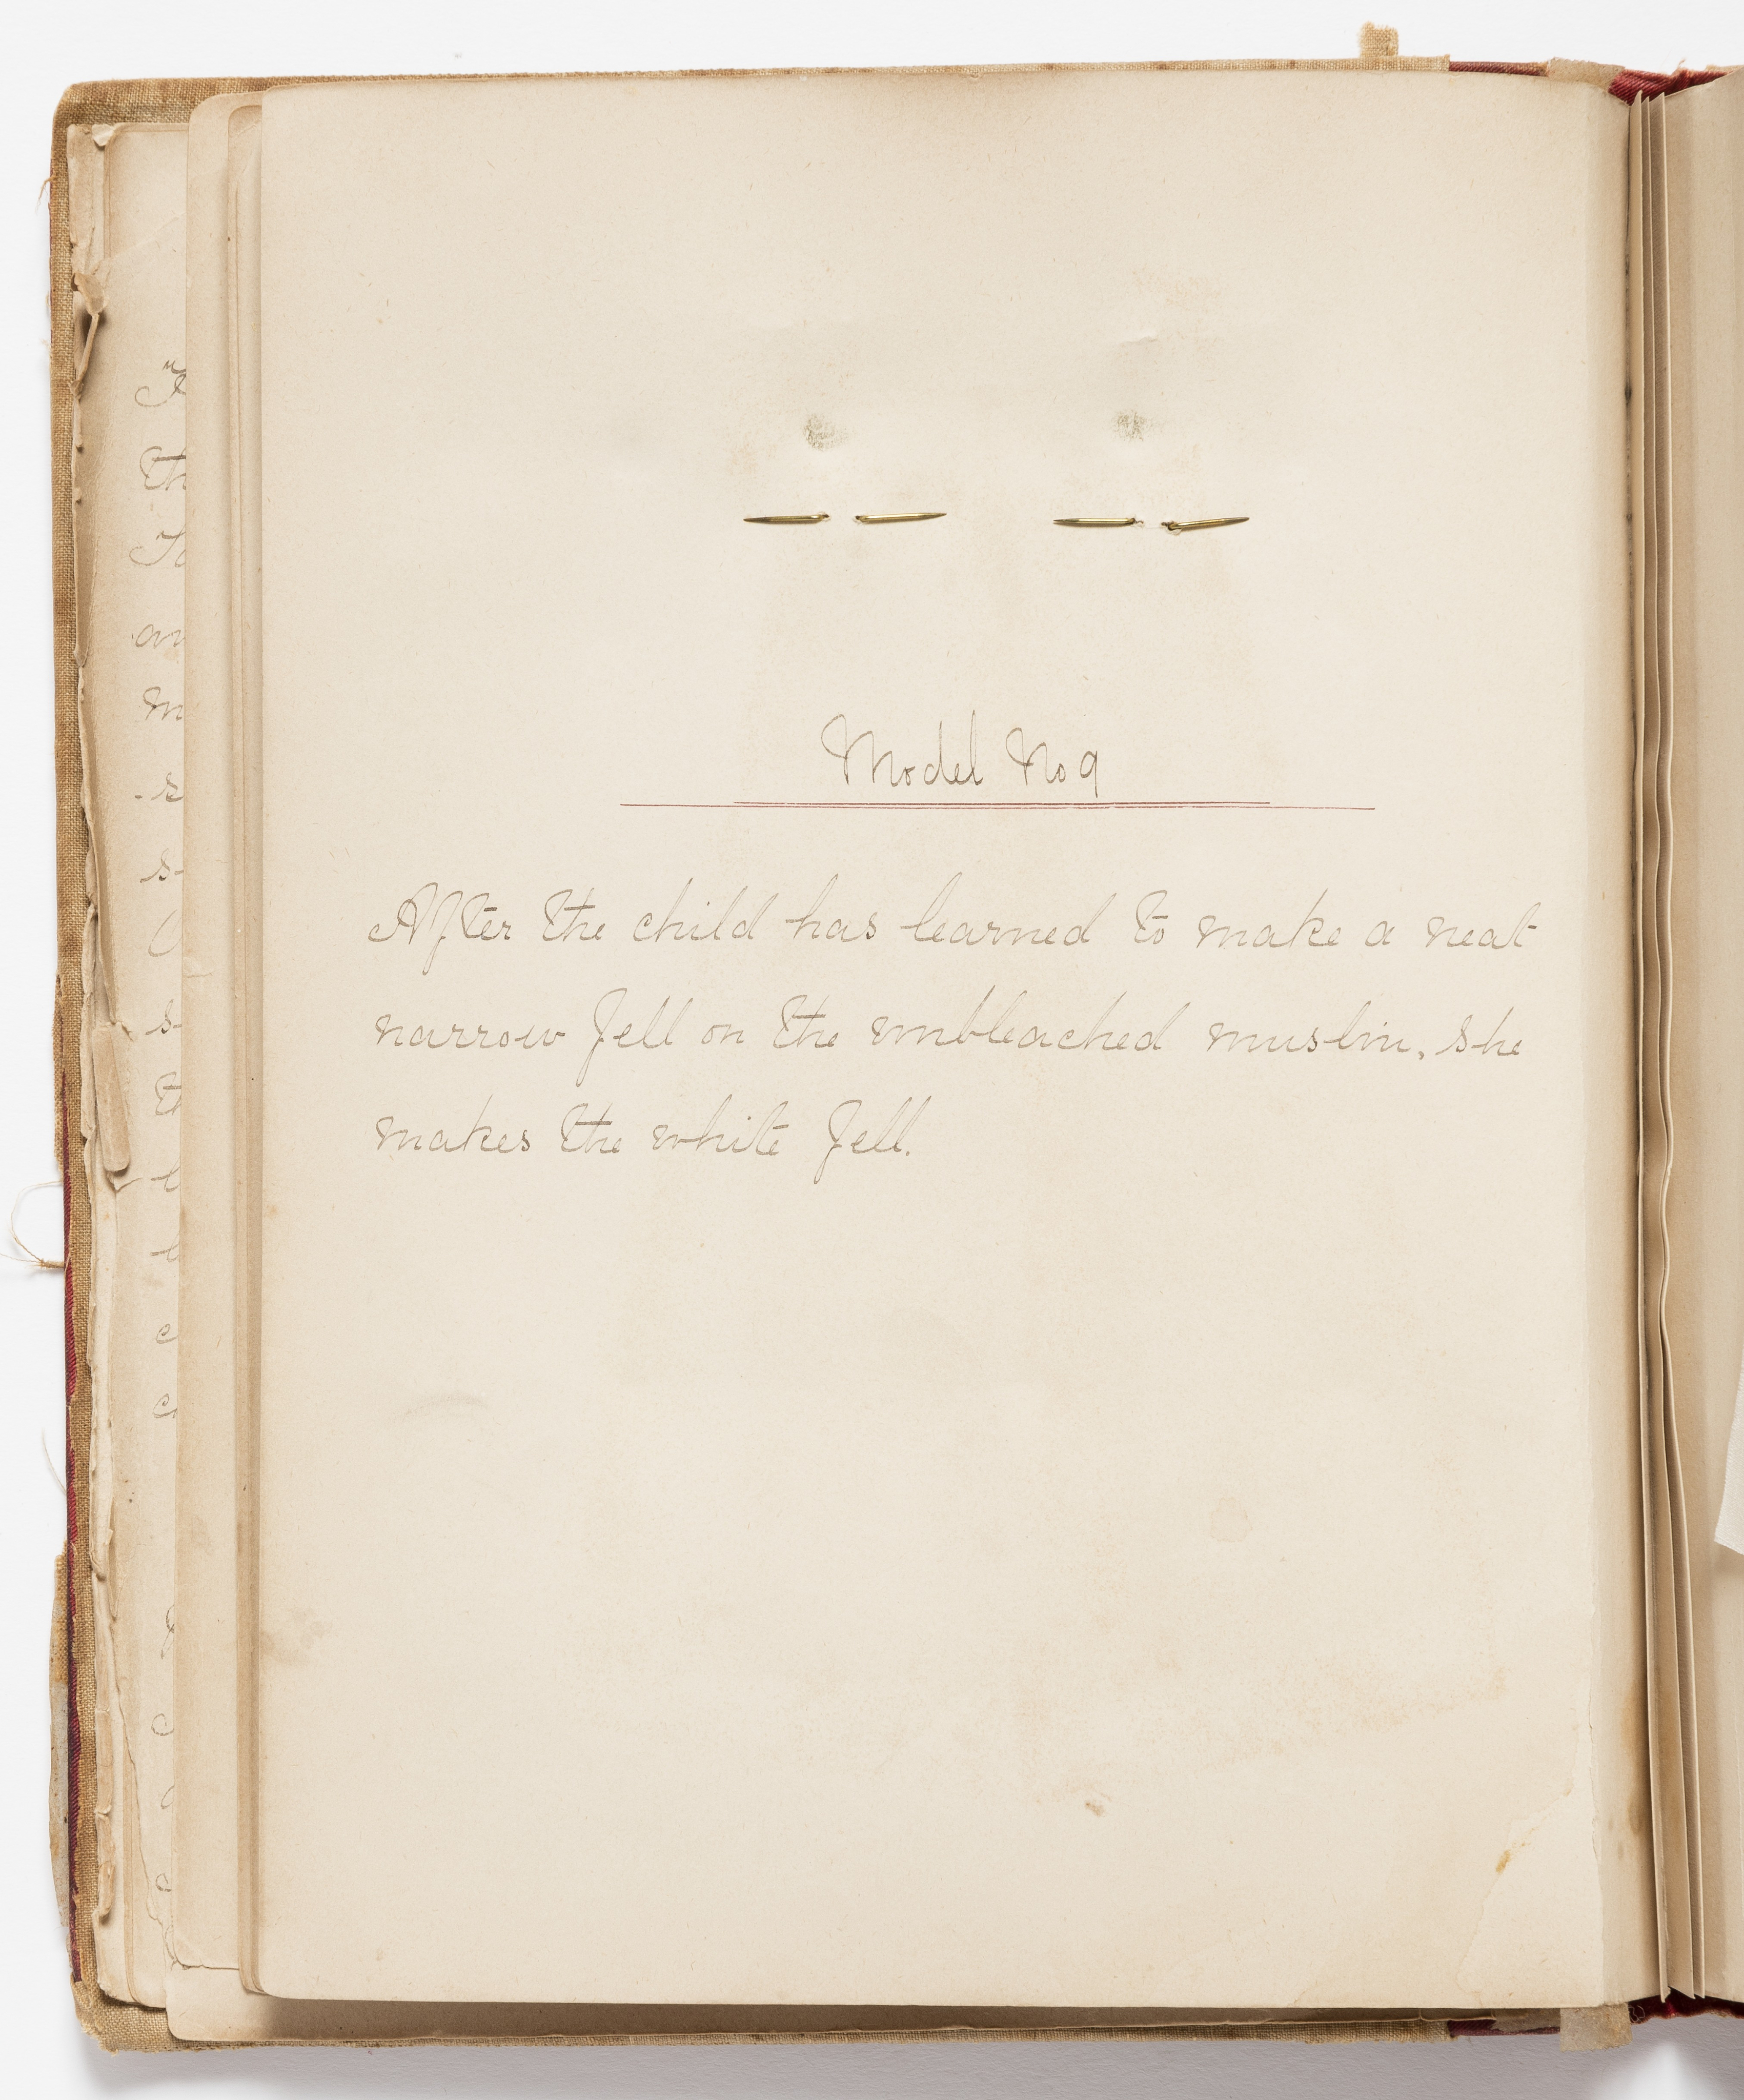 Model No 9
After the child has learned to make a neat
narrow fell on the unbleached muslin, she
makes the white fell.